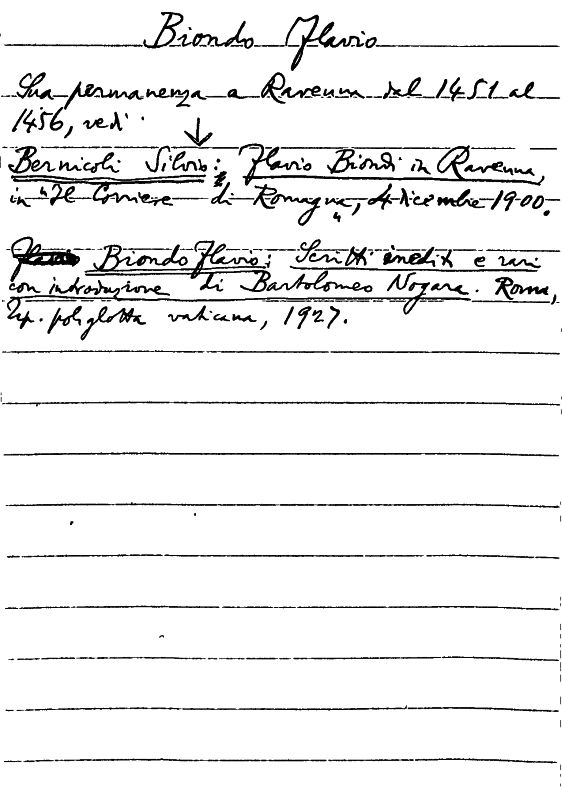 Biondo Flavio
Sua permanenza a Ravenna dal 1451 al
1456, vedi
Bernicoli Silvio: Flavio Biondi in Ravenna,
in "Il Corriere di Romagna", 4 dicembre 1900.
Flavio Biondo Flavio: Scritti inediti e rari
con introduzione di Bartolomeo Nogara. Roma,
Tip. poliglotta vaticana, 1927.